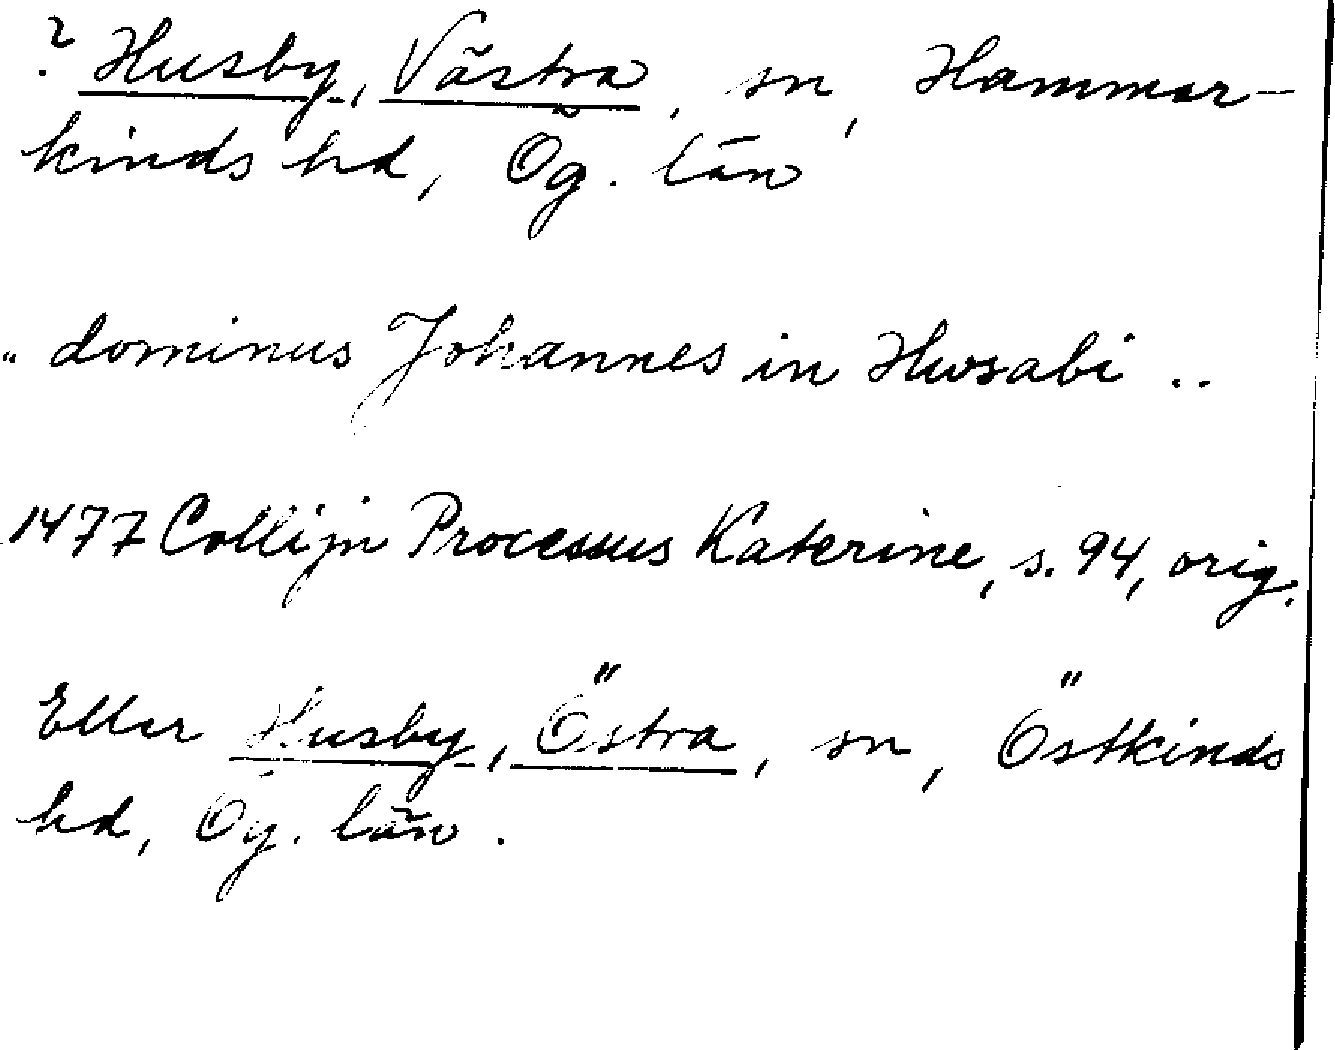 ? Husby, Västra, sn, Hammar-
kinds hd, Ög. län
.. dominus Johannes in Hwsabi ..
1477 Collijn Processus Katerine, s. 94, orig.
Eller Husby, Östra, sn, Östkinds
hd, Ög. län.